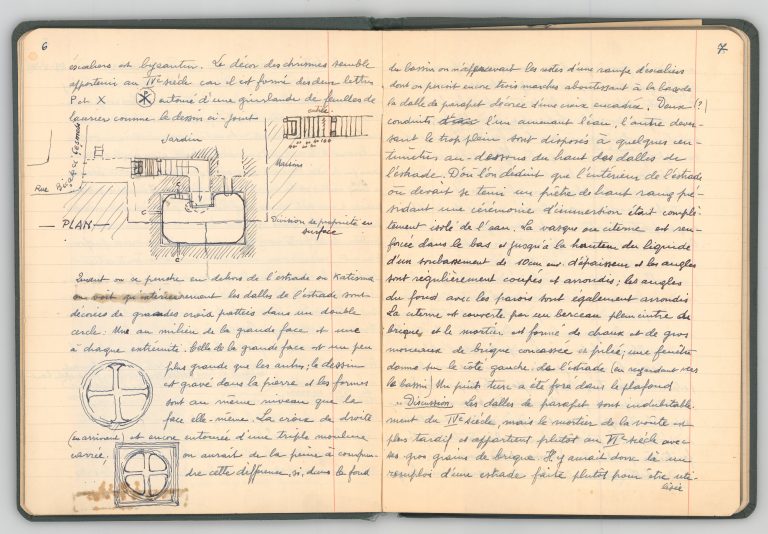 6
escaliers est byzantin. Le décor des chrismes semble
appartenir au IVe siècle car il est formé des deux lettres
P et X entouré d'une guirlande de feuilles de
laurier comme le dessin ci-joint
entrée
Jardin
Maison
Rue
PLAN
Division de propriété en
surface
Quand on se penche en dehors de l'estrade ou Katisma
on voit qu'intérieurement les dalles de l'estrade sont
décorées de grandes croix pattées dans un double
cercle. Une au milieu de la grande face et une
à chaque extrémité. Celle de la grande face est un peu
plus grande que les autres; le dessin
est gravé dans la pierre et les formes
sont au même niveau que la
face elle-même. La croix de droite
(en arrivant) est encore entourée d'une triple moulure
carrée, on aurait de la peine à compren-
dre cette différence, si, dans le fond
7
du bassin on n'apercevait les restes d'une rampe d'escaliers
dont on perçoit encore trois marches aboutissant à la base de
la dalle de parapet décorée d'une croix encadrée. Deux (?)
conduits l'un amenant l'eau, l'autre déver-
sant le trop plein sont disposés à quelques cen-
timètres au-dessous du haut des dalles de
l'estrade. D'où l'on déduit que l'intérieur de l'estrade
où devait se tenir un prêtre de haut rang pré-
sidant une cérémonie d'immersion était complè-
tement isolé de l'eau. La vasque ou citerne est ren-
forcée dans le bas et jusqu'à la hauteur du liquide
d'un soubassement de 10cm env. d'épaisseur et les angles
sont régulièrement coupés et arrondis; les angles
du fond avec les parois sont également arrondis
La citerne est couverte par un berceau plein cintre de
briques et le mortier est formé de chaux et de gros
morceaux de brique concassée et pilée; une fenêtre
donne sur le côté gauche de l'estrade (en regardant vers
le bassin) Un puits turc a été foré dans le plafond
Discussion. Les dalles de parapet sont indubitable-
ment du IVe siècle, mais le mortier de la voûte est
plus tardif et appartient plutôt au VIe siècle avec
ses gros grains de brique. Il y aurait donc là un
remploi d'une estrade faite plutôt pour être uti-
lisée